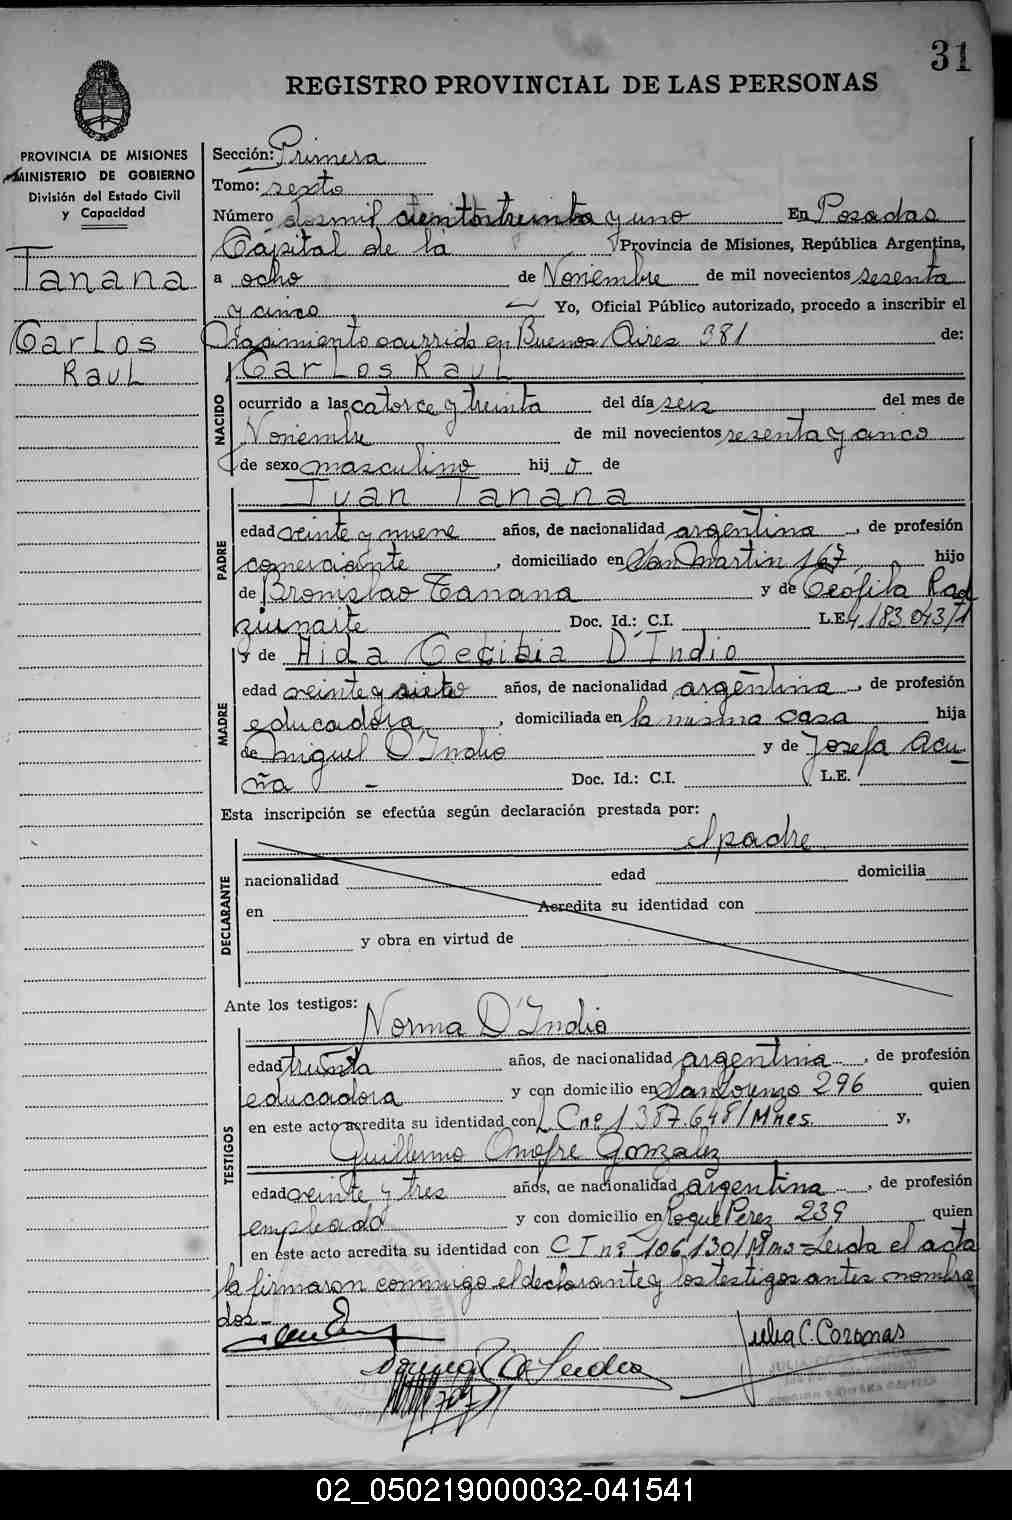 31
REGISTRO PROVINCIAL DE LAS PERSONAS
PROVINCIA DE MISIONES
MINISTERIO DE GOBIERNO
División del Estado Civil
y Capacidad
Tanana
Carlos
Raul
Sección: Primera
Tomo: sexto
Número dosmil cientotreinta y uno En Posadas
Capital de la Provincia de Misiones, República Argentina,
a ocho de Noviembre de mil novecientos sesenta
y cinco Yo, Oficial Público autorizado, procedo a inscribir el
Nacimiento ocurrido en Buenos Aires 381 de:
NACIDO
Carlos Raul
ocurrido a las catorce y treinta del día seis del mes de
Noviembre de mil novecientos sesenta y cinco
de sexo masculino hij o de
PADRE
Ivan Tanana
edad veinte y nueve años, de nacionalidad argentina, de profesión
comerciante, domiciliado en San Martin 167, hijo
de Bronislao Tanana y de Teófila Rad
ziunaite Doc. Id.: C.I. L.E. 4.183.043/1
y de Aida Cecilia D'Indio
MADRE
edad veinte y siete años, de nacionalidad argentina, de profesión
educadora, domiciliada en la misma casa hija
de Miguel D'Indio y de Josefa Acu-
ña - Doc. Id.: C.I. L.E.
Esta inscripción se efectúa según declaración prestada por:
el padre
DECLARANTE
nacionalidad edad domicilia
en Acredita su identidad con
y obra en virtud de
Ante los testigos: Norma D'Indio
TESTIGOS
edad treinta años, de nacionalidad argentina, de profesión
educadora y con domicilio en San Lorenzo 296 quien
en este acto acredita su identidad con L.C nº 1.387.648/Mnes. y,
Guillermo Onofre Gonzalez
edad veinte y tres años, de nacionalidad argentina, de profesión
empleado y con domicilio en Roque Perez 239 quien
en este acto acredita su identidad con C I nº 106.130/Mns-Leida el acta
la firmaron conmigo el declarante y los testigos antes nombra
dos-
Julia C. Coronas
02_050219000032-041541